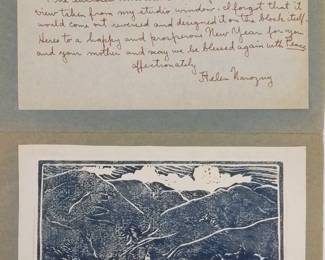 view taken from my studio window. I forgot that it
would come out reversed and designed it on the block itself.
Heres to a happy and prosperous New Year for you
and your mother and may we be blessed again with Peace
affectionately
Helen